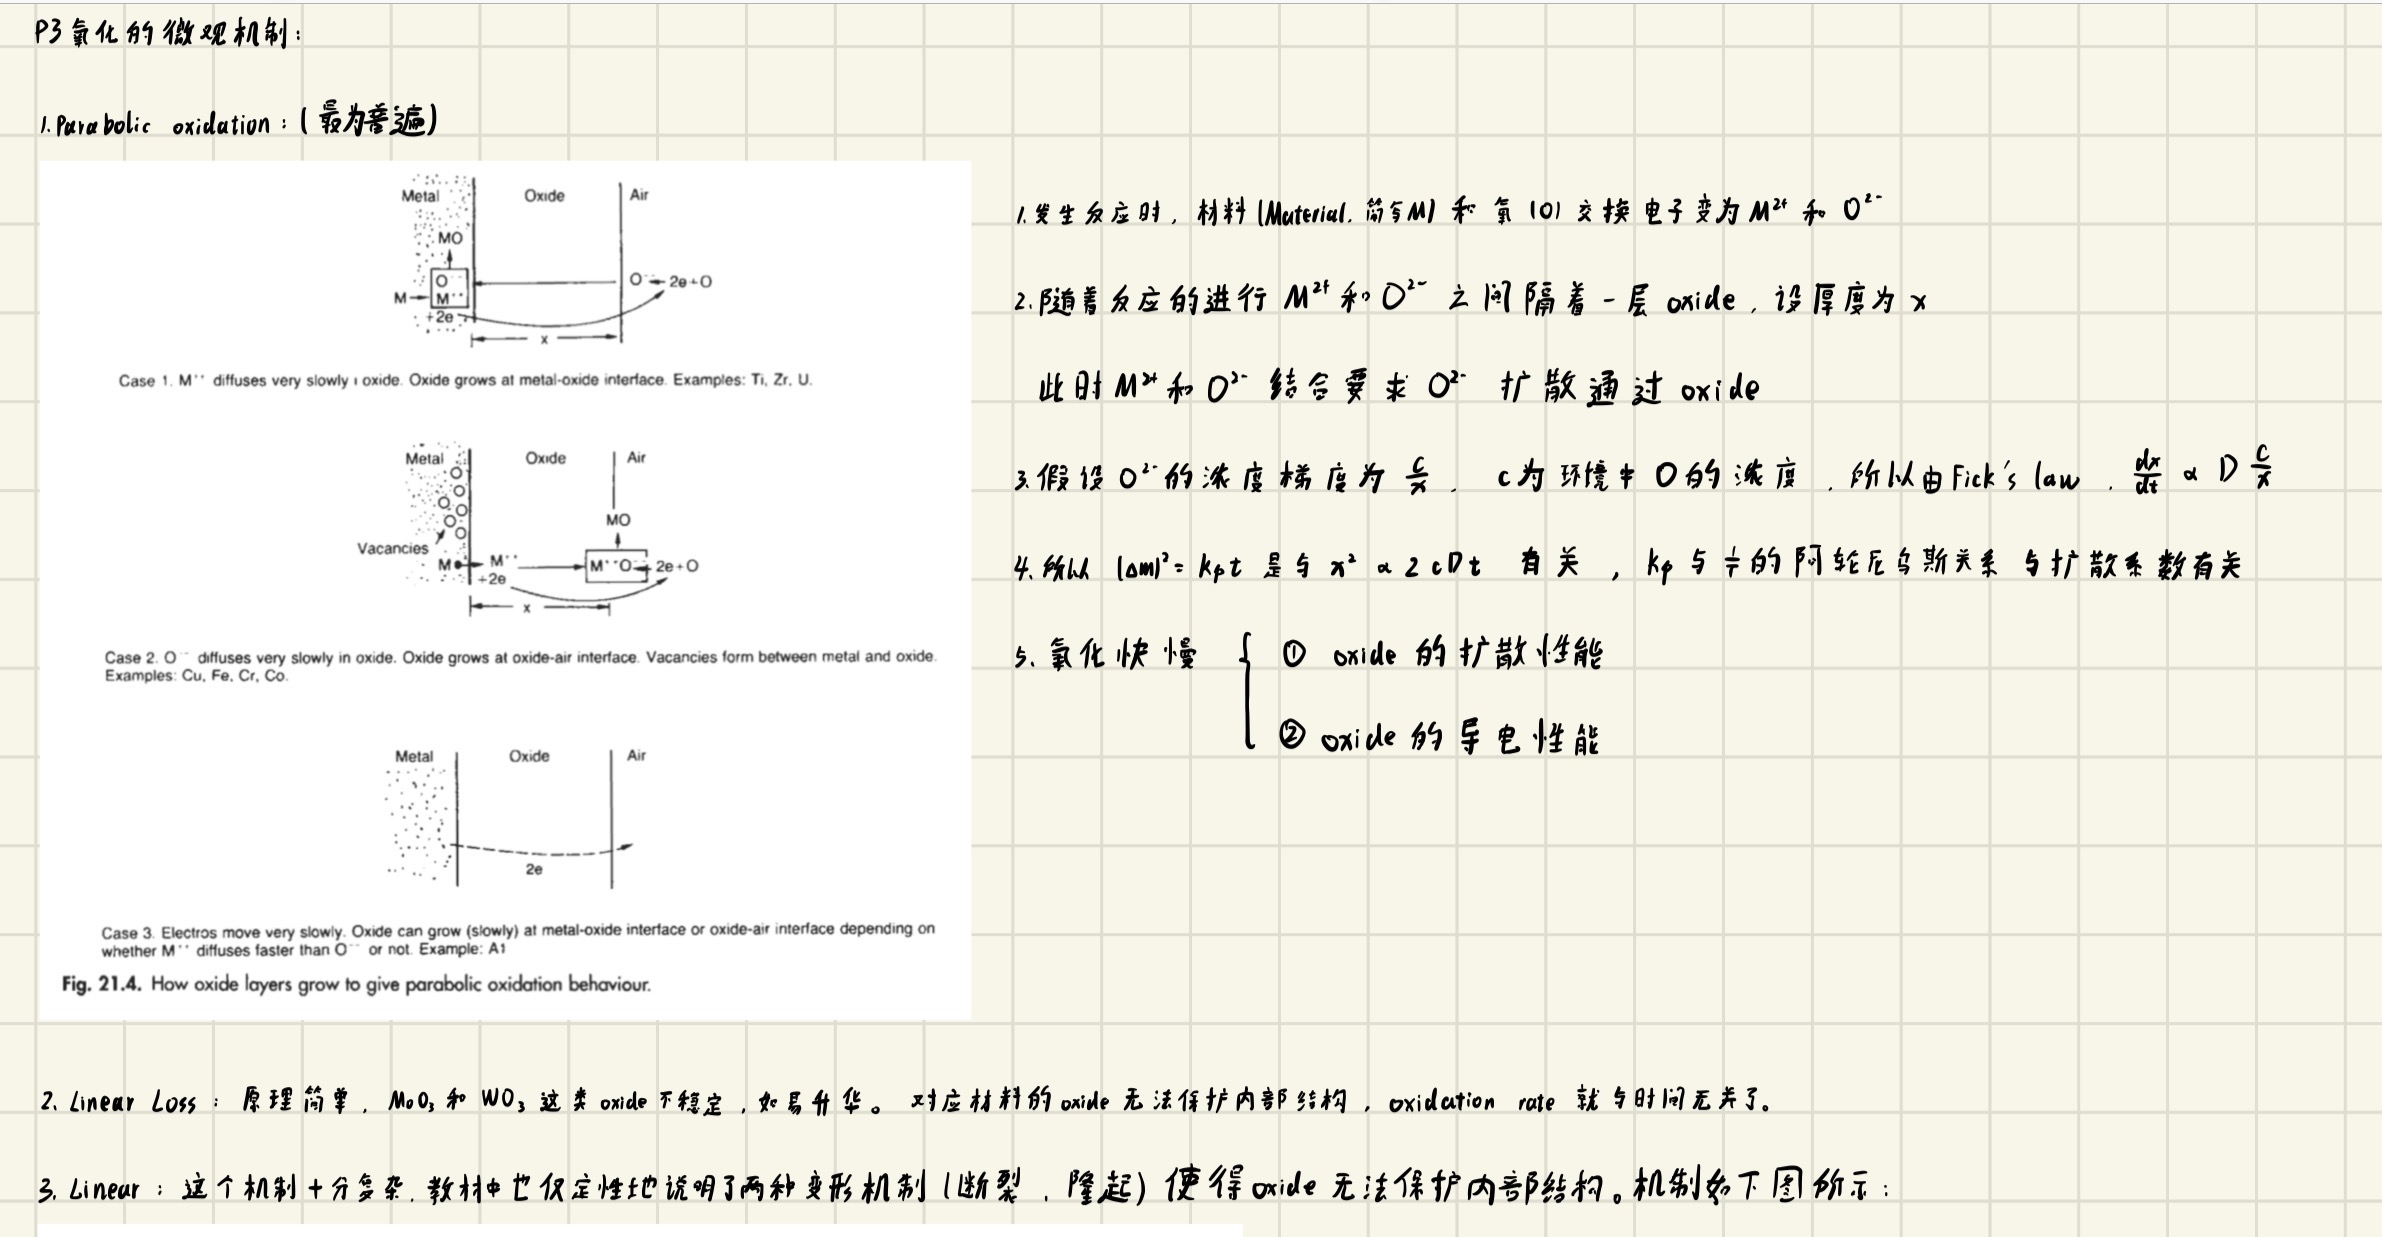 P3 氧化的微观机制：
1. Parabolic oxidation：(最为普遍)
Metal Oxide Air
MO
O⁻⁻ O⁻⁻ 2e+O
M M⁺⁺
+2e
x
Case 1. M⁺⁺ diffuses very slowly oxide. Oxide grows at metal-oxide interface. Examples: Ti, Zr, U.
Metal Oxide Air
MO
Vacancies
M M⁺⁺ M⁺⁺O⁻⁻ 2e+O
+2e
x
Case 2. O⁻⁻ diffuses very slowly in oxide. Oxide grows at oxide-air interface. Vacancies form between metal and oxide.
Examples: Cu, Fe, Cr, Co.
Metal Oxide Air
2e
Case 3. Electros move very slowly. Oxide can grow (slowly) at metal-oxide interface or oxide-air interface depending on
whether M⁺⁺ diffuses faster than O⁻⁻ or not. Example: A1
Fig. 21.4. How oxide layers grow to give parabolic oxidation behaviour.
1. 发生反应时，材料 (Material. 简写M) 和 氧 (O) 交换电子变为 M²⁺ 和 O²⁻
2. 随着反应的进行 M²⁺ 和 O²⁻ 之间隔着一层 oxide，设厚度为 x
此时 M²⁺ 和 O²⁻ 结合要求 O²⁻ 扩散通过 oxide
3. 假设 O²⁻ 的浓度梯度为 c/x ，c为环境中O的浓度，所以由Fick's law，dx/dt ∝ D c/x
4. 所以 (Δm)² = kpt 是与 x² ∝ 2cDt 有关，kp 与 1/T 的阿轮尼乌斯关系 与扩散系数有关
5. 氧化快慢 { ① oxide 的扩散性能
② oxide 的导电性能
2. Linear Loss：原理简单，MoO₃ 和 WO₃ 这类 oxide 不稳定，如易升华。对应材料的 oxide 无法保护内部结构，oxidation rate 就与时间无关了。
3. Linear：这个机制十分复杂，教材中也仅定性地说明了两种变形机制 (断裂、隆起) 使得 oxide 无法保护内部结构。机制如下图所示：